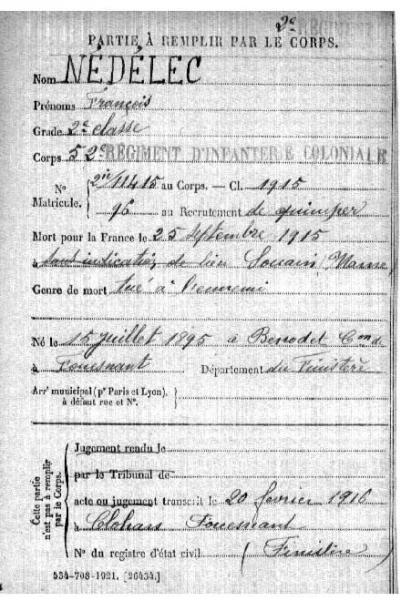 2e
PARTIE À REMPLIR PAR LE CORPS.
Nom NÉDÉLEC
Prénoms François
Grade 2e classe
Corps 52e RÉGIMENT D'INFANTERIE COLONIALE
N° Matricule. { 11415 au Corps. — Cl. 1915
96 au Recrutement de quimper
Mort pour la France le 25 septembre 1915
à sans indication de lieu Souain (Marne
Genre de mort tué à l'ennemi
Né le 15 juillet 1895 à Benodet Cne de
à Fouesnant Département du Finistère
Arrt municipal (pr Paris et Lyon), à défaut rue et N°.
Cette partie n'est pas à remplir par le Corps.
Jugement rendu le
par le Tribunal de
acte ou jugement transcrit le 20 février 1916
à Clohars Fouesnant
N° du registre d'état civil (Finistère)
534-708-1921. [26434.]